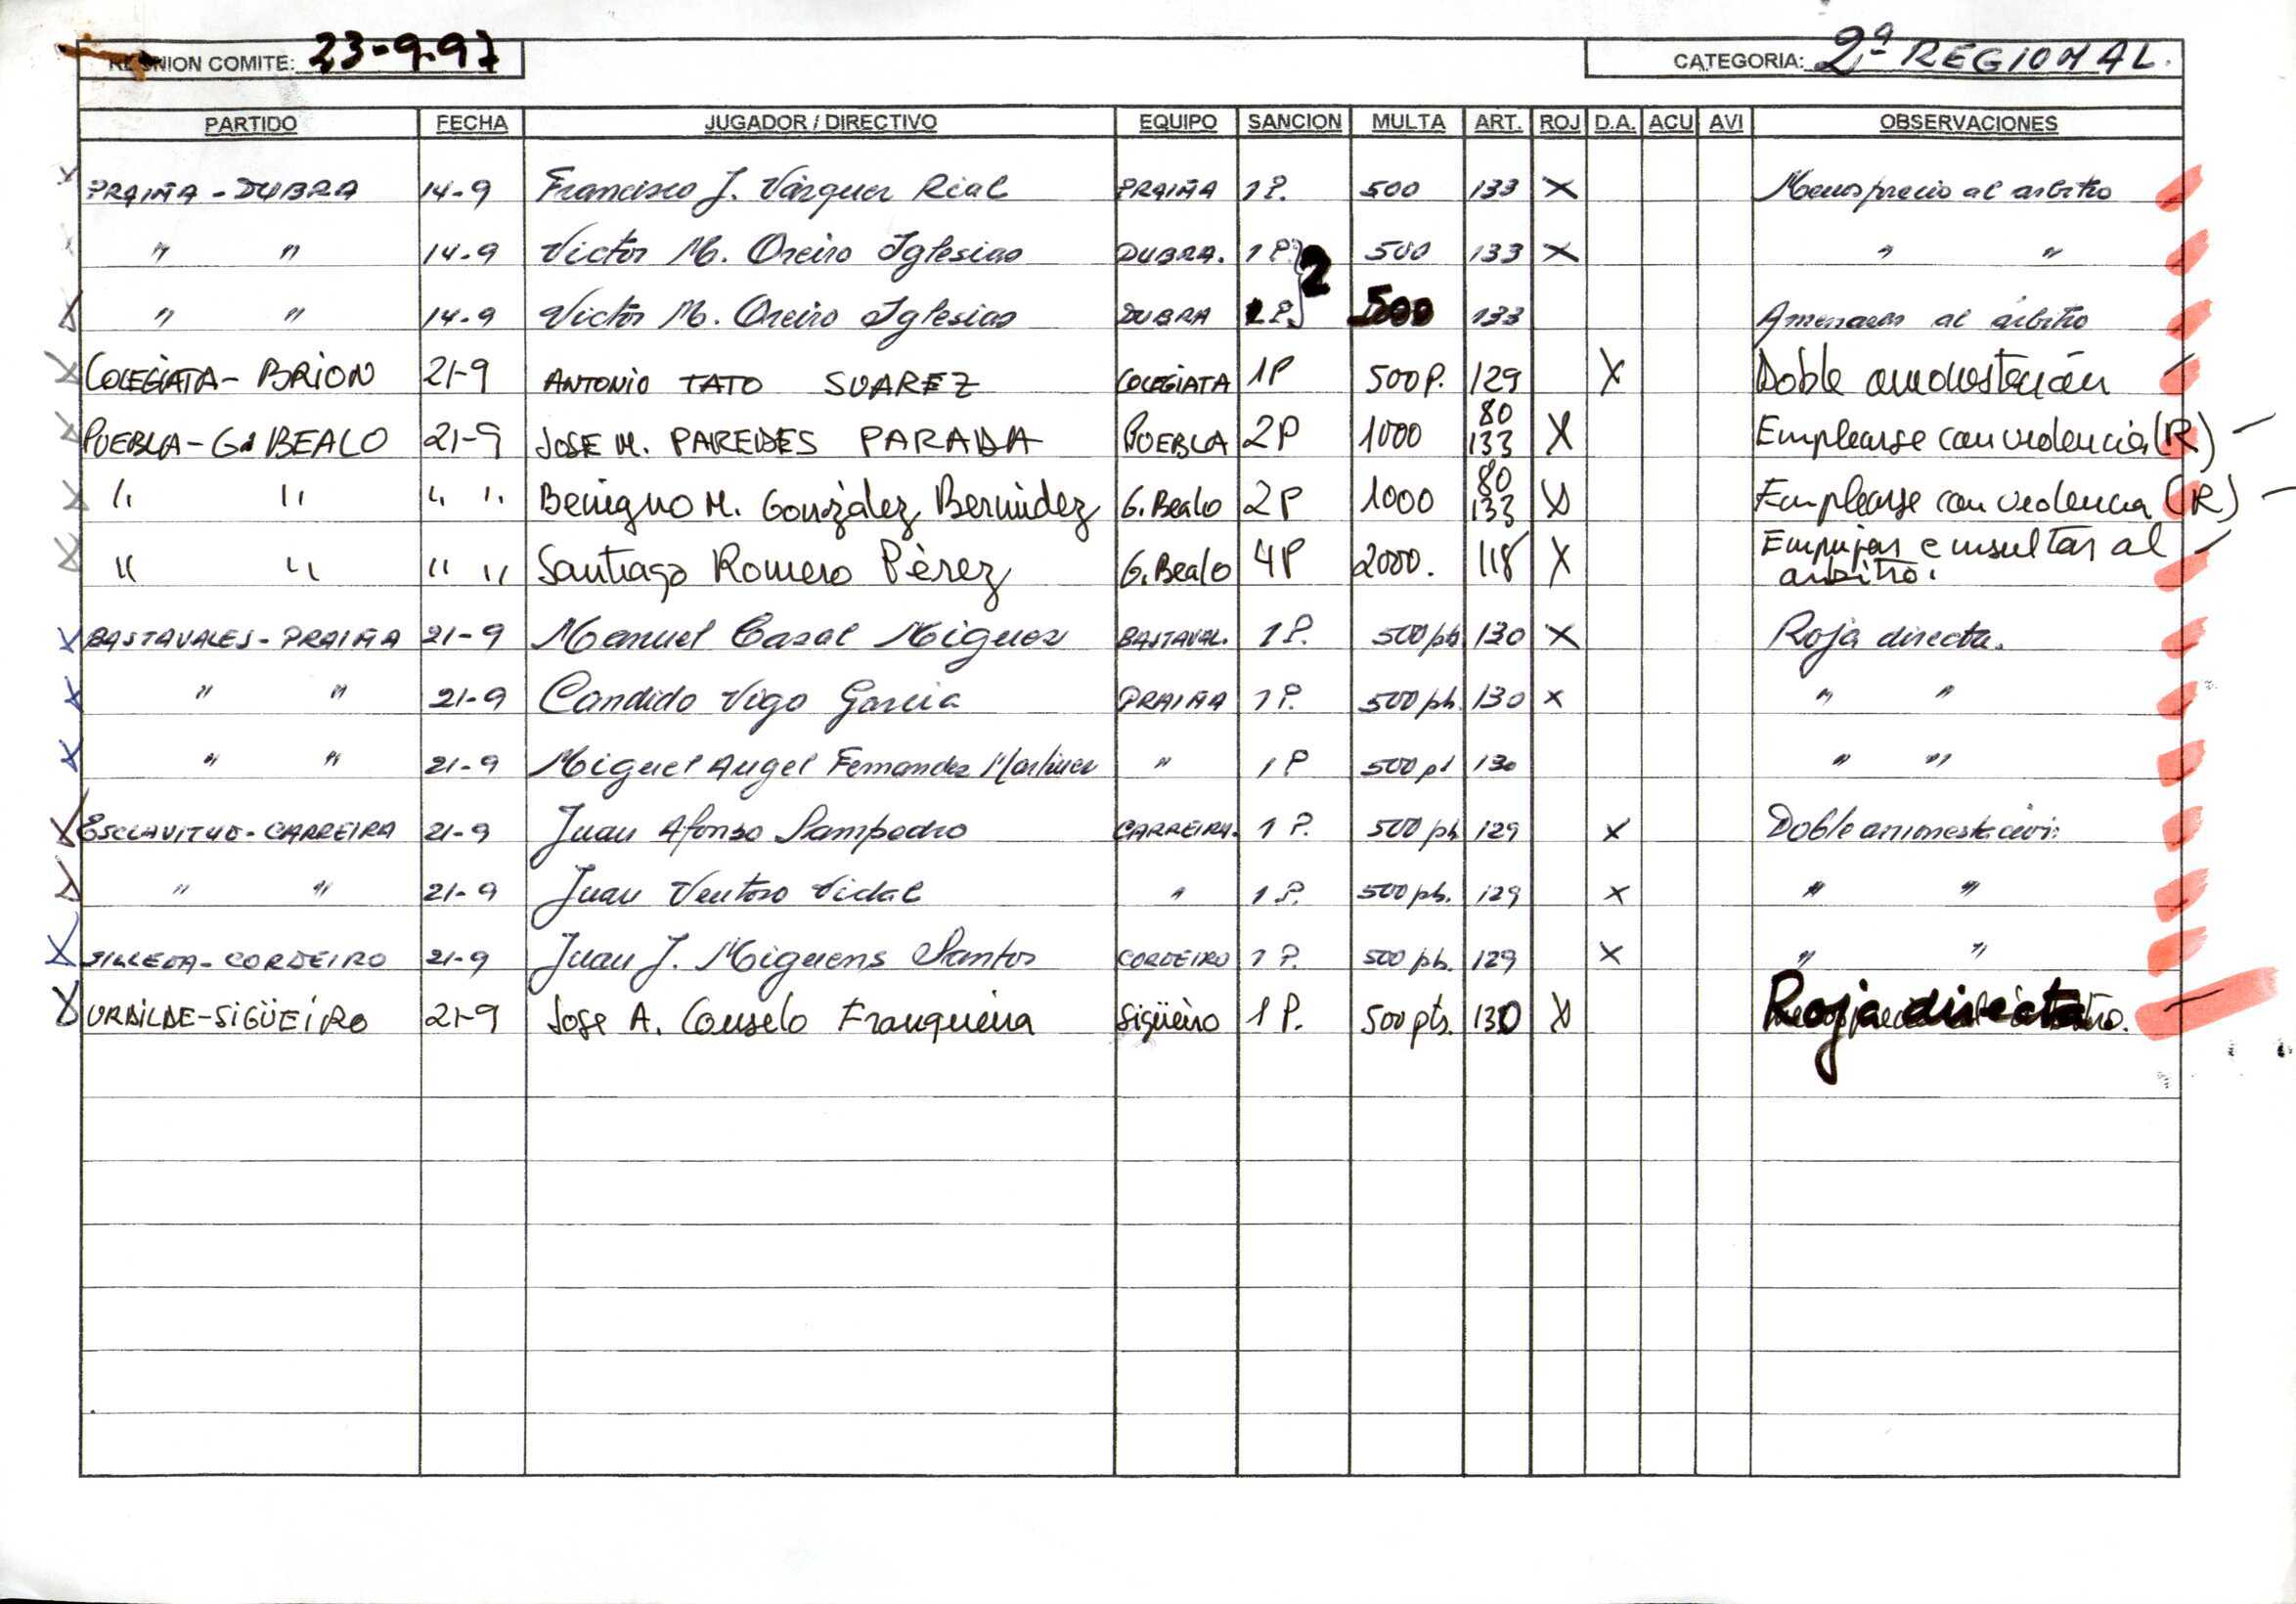 REUNION COMITE: 23-9-97
CATEGORIA: 2ª REGIONAL.
PARTIDO FECHA JUGADOR / DIRECTIVO EQUIPO SANCION MULTA ART. ROJ D.A. ACU AVI OBSERVACIONES
X PRAIÑA - DUBRA 14-9 Francisco J. Vázquez Rial PRAIÑA 1 P. 500 133 X Menosprecio al arbitro
" " 14-9 Victor M. Oreiro Iglesias DUBRA. 1 P. 2 500 133 X " "
X " " 14-9 Victor M. Oreiro Iglesias DUBRA P. 500 133 Amenazas al árbitro
X COLEGIATA - BRION 21-9 ANTONIO TATO SUAREZ COLEGIATA 1P 500 P. 129 X Doble amonestación
X PUEBLA - G. BEALO 21-9 JOSE M. PAREDES PARADA PUEBLA 2P 1000 80 133 X Emplearse con violencia (R)
X " " " " Benigno M. González Bermúdez G. Bealo 2P 1000 80 133 X Emplearse con violencia (R)
X " " " " Santiago Romero Pérez G. Bealo 4P 2000. 118 X Empujar e insultar al
arbitro.
X BASTAVALES - PRAIÑA 21-9 Manuel Casal Miguez BASTAVAL. 1 P. 500 pts 130 X Roja directa.
X " " 21-9 Candido Vigo Garcia PRAIÑA 1 P. 500 pts. 130 X " "
X " " 21-9 Miguel Angel Fernandez Martinez " 1 P 500 pt 130 " "
X ESCLAVITUD - CARREIRA 21-9 Juan Afonso Sampedro CARREIRA. 1 P. 500 pts 129 X Doble amonestación
X " " 21-9 Juan Ventoso Vidal " 1 P. 500 pts. 129 X " "
X SILLEDA - CORDEIRO 21-9 Juan J. Miguens Santos CORDEIRO 1 P. 500 pts. 129 X " "
X URDILDE - SIGÜEIRO 21-9 Jose A. Conselo Franqueira Sigüeiro 1 P. 500 pts. 130 X Roja directa